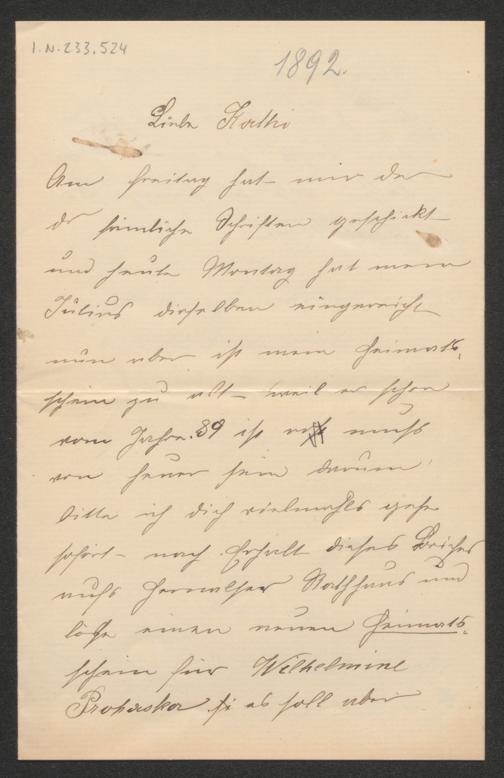 I.N. 233.524
1892.
Liebe Kathi
Am Freitag hat mir der
dr sämliche Schriften geschickt
und heute Montag hat mein
Julius dieselben eingereicht
nun aber ist mein Heimats-
schein zu alt – weil er schon
vom Jahre 89 ist muß
von heuer sein darum
bitte ich dich vielmahls gehe
sofort – nach Erhalt dieses Briefes
aufs Hernalser Rathhaus und
löse einen neuen Heimats-
schein für Wilhelmine
Prohaska es soll aber